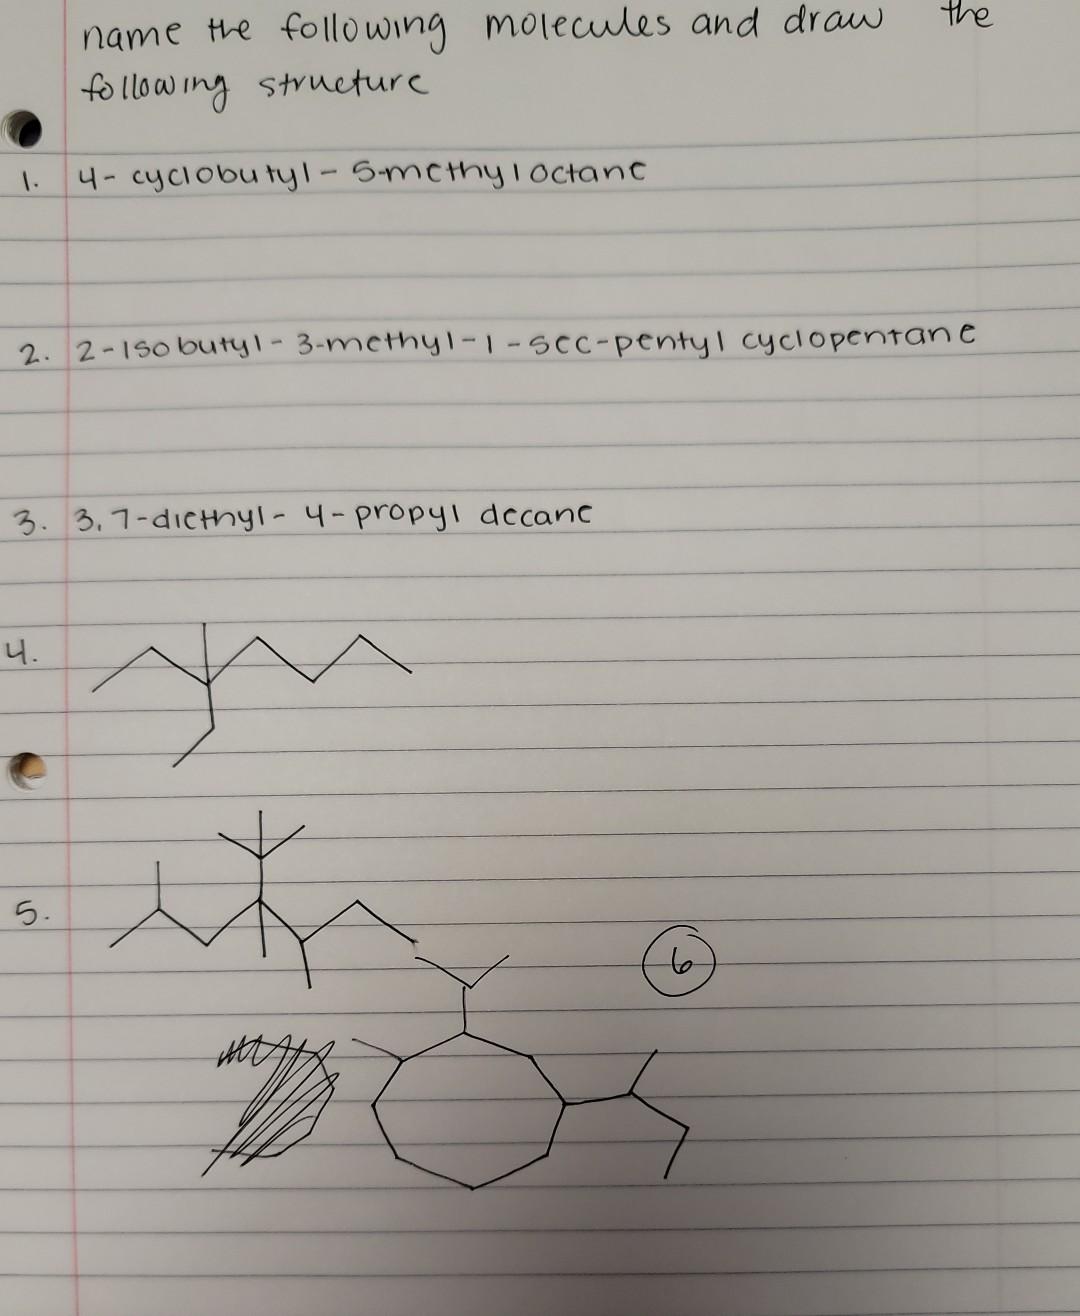 name the following molecules and draw the
following structure
1. 4-cyclobutyl-5-methyloctane
2. 2-isobutyl-3-methyl-1-sec-pentyl cyclopentane
3. 3,7-diethyl-4-propyl decane
4.
5.
6